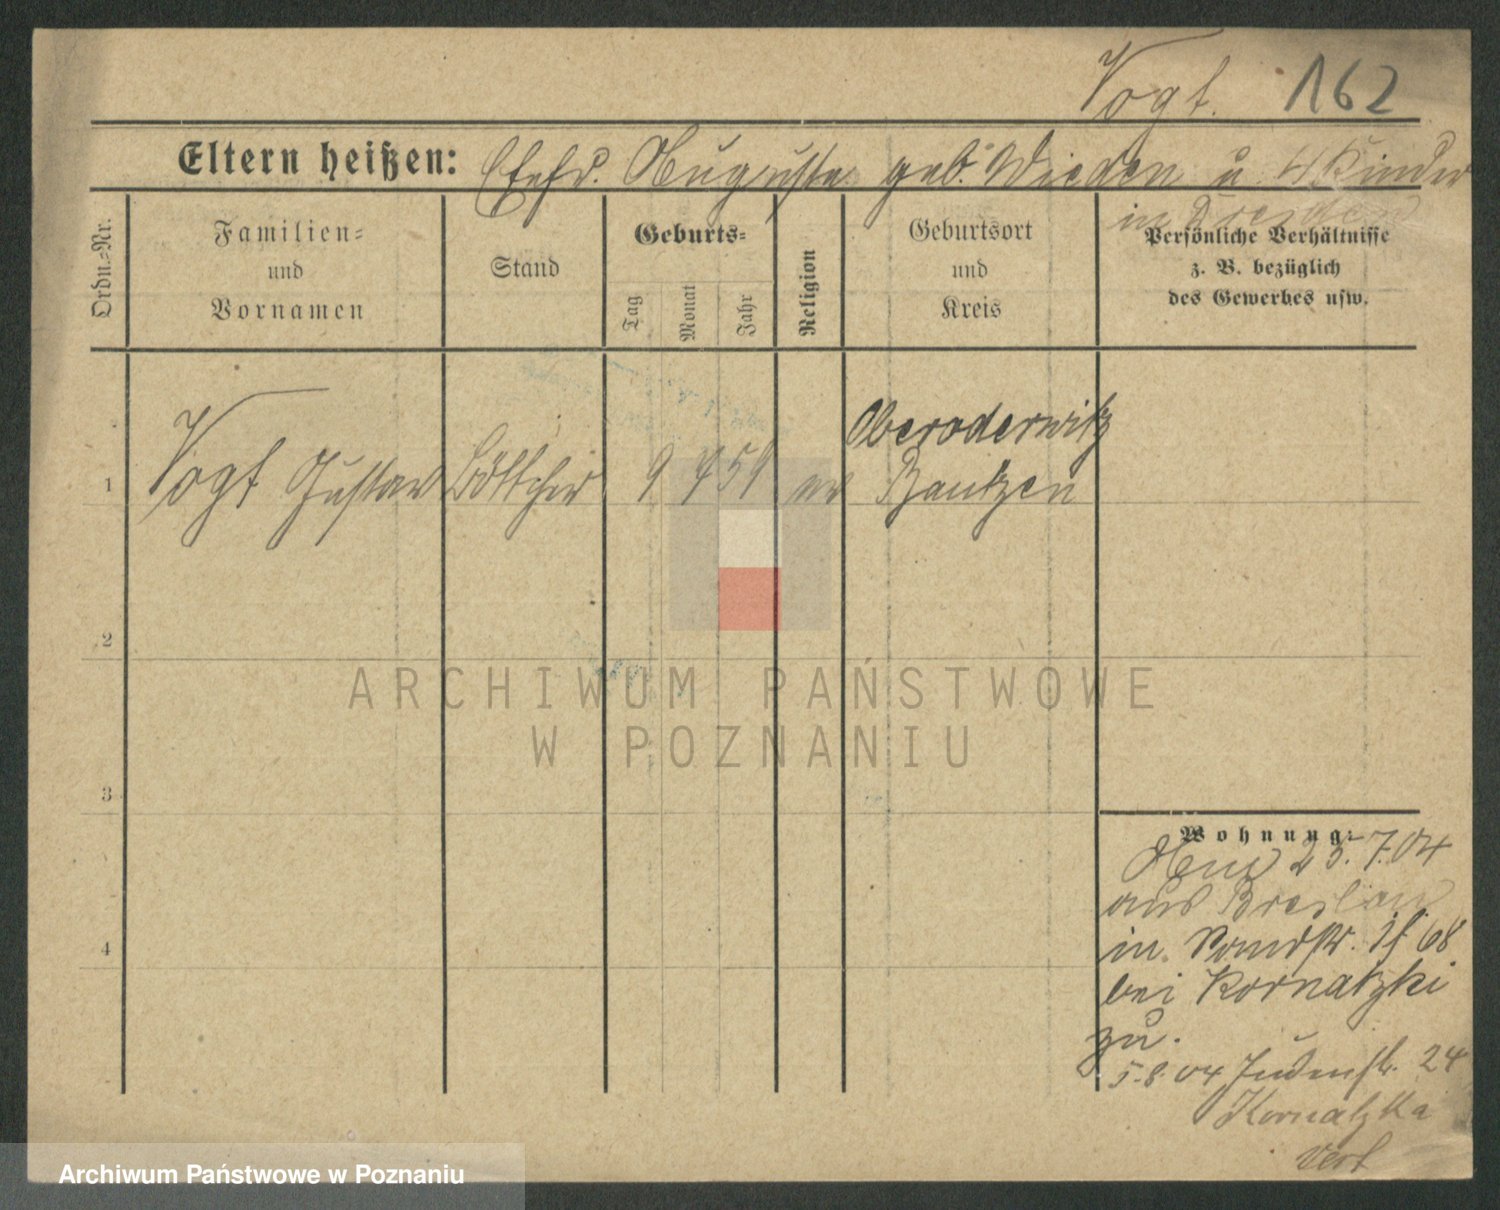 Vogt. 162
Eltern heißen: Ehefr. Auguste geb. Wieden u 4 Kinder
in Dresden
Ordn.-Nr.
Familien-
und
Vornamen
Stand
Geburts-
Tag
Monat
Jahr
Religion
Geburtsort
und
Kreis
Persönliche Verhältnisse
z. B. bezüglich
des Gewerbes usw.
1
Vogt Gustav
Böttcher
9 7 59
ev
Oberoderwitz
Bautzen
2
3
4
Wohnung:
25.7.04
aus Breslau
in 68
bei Kornatzki
zu.
5.8.04 Judenstr. 24
Kornatzka
ARCHIWUM PAŃSTWOWE
W POZNANIU
Archiwum Państwowe w Poznaniu